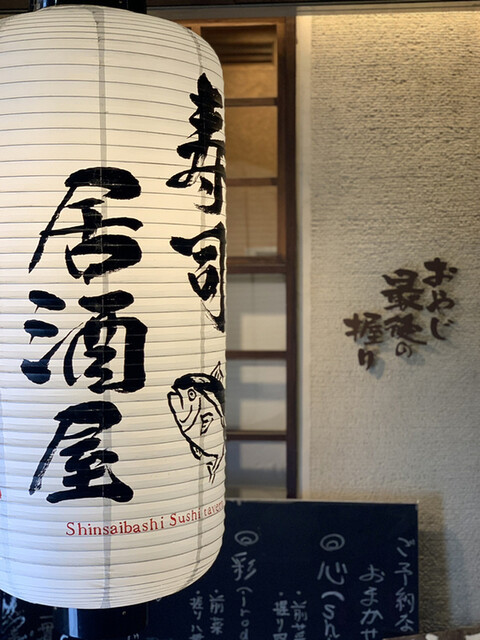 寿司
居酒屋
Shinsaibashi Sushi tavern
おやじ
最後の
握り
ご予約な
おまか
◎心(sh
・前菜
・握り
◎彩(irod
・前菜
・握り八